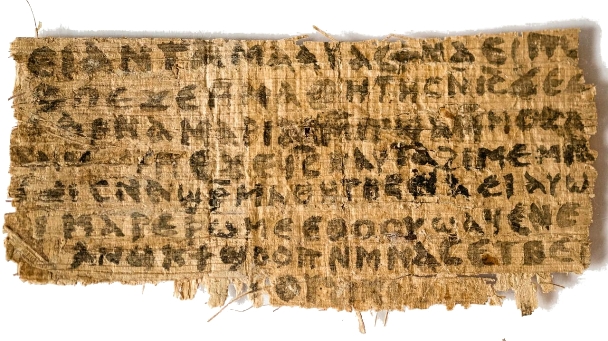 ⲉⲓ ⲁⲛ ⲧⲁⲙⲁⲁⲩ ⲁⲥϯ ⲛⲁⲉⲓ ⲡⲱ
ⲥ ⲡⲉϫⲉ ⲙⲙⲁⲑⲏⲧⲏⲥ ⲛⲓ̅ⲥ̅ ϫⲉ ⲥ
ⲁⲣⲛⲁ ⲙⲁⲣⲓⲁⲙ ⲙⲡϣⲁ ⲙⲙⲟⲥ ⲁ
ⲡⲉϫⲉ ⲓ̅ⲥ̅ ⲛⲁⲩ ⲧⲁϩⲓⲙⲉ ⲙⲛ
ⲥⲛⲁϣⲣⲙⲁⲑⲏⲧⲏⲥ ⲛⲁⲉⲓ ⲁⲩⲱ
ⲓ ⲙⲁⲣⲉⲣⲱⲙⲉ ⲉⲑⲟⲟⲩ ϣⲁϥⲉ ⲛⲉ
ⲁⲛⲟⲕ ϯϣⲟⲟⲡ ⲛⲙⲙⲁⲥ ⲉⲧⲃⲉ ⲡ